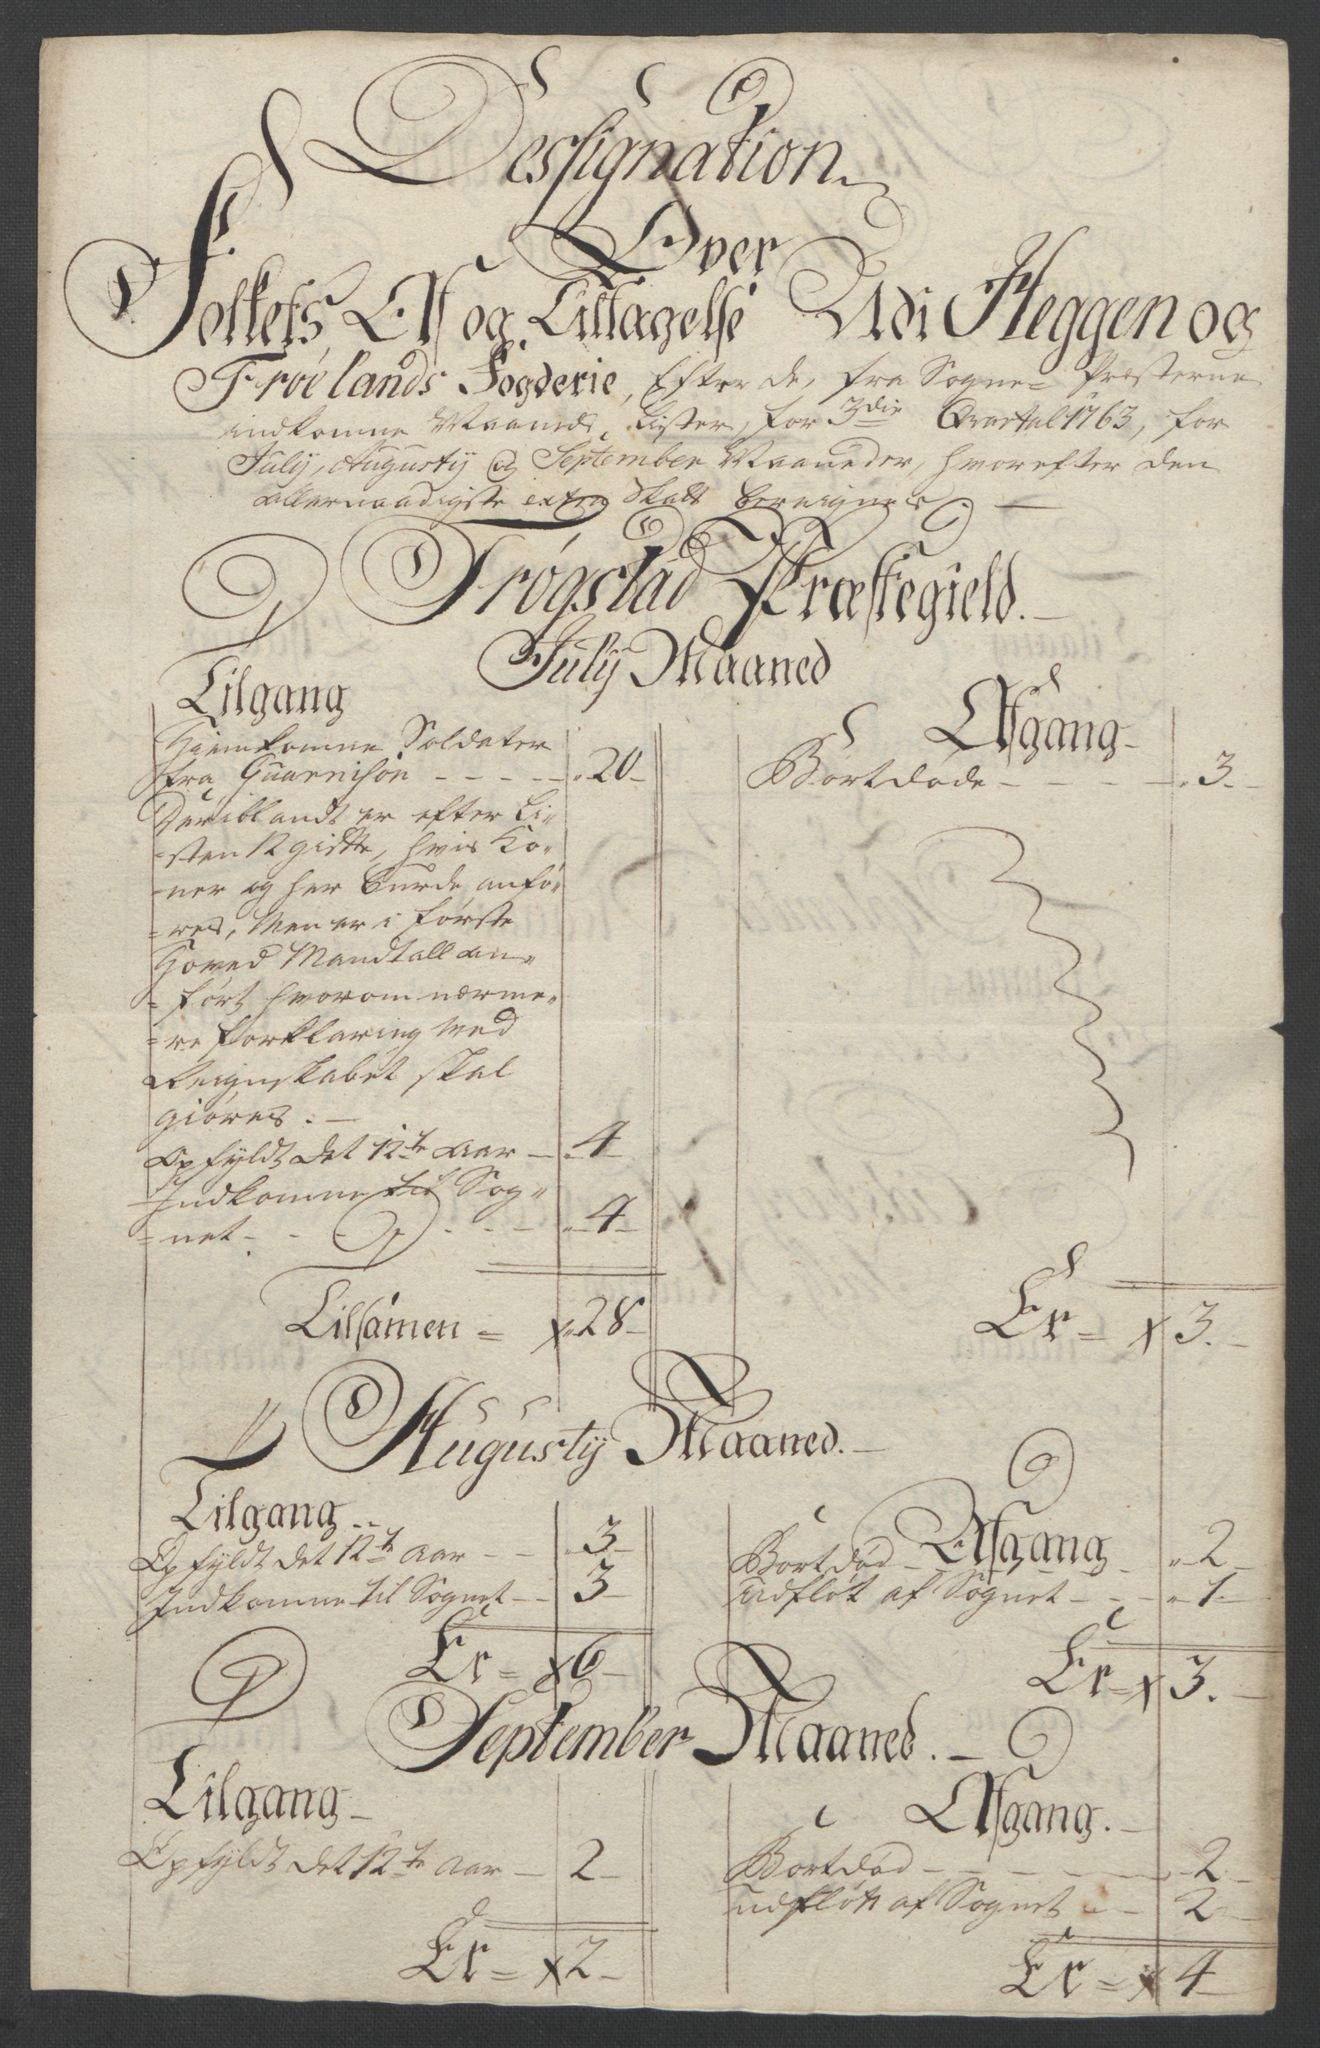 Dessignation
Over
Folkets Af og Tiltagelse Udi Heggen og
Frøelands Fogderie, Efter de, fra Sogne= Præsterne
indkomne Maaneds Lister, for 3die Qvartal 1763, for
July, Augusty og September Maaneder, hvorefter den
allernaadigste extra Skatt bereignes.
Trøgstad Præstegield.
July Maaned
Tilgang
Hiemkomne Soldater
fra Guarnison - - - - - 20
Deriblandt er efter Li=
=sten 12 gifte, hvis Ko=
=ner og her burde anfø=
=res, Men er i første
Hoved Mandtall an=
=ført hvorom nærme=
=re forklaring ved
Reignskabet skal
giøres.
Opfyldt det 12te Aar - 4
Indkomne til Sog=
=net - - - - - 4
Tilsamen = x 28
Afgang
Bortdøde - - - - 3.
Er = x 3.
Augusty Maaned.
Tilgang
Opfyldt det 12te Aar - - 3
Indkomne til Sognet - - 3
Er = x 6
Afgang
Bortdød - - 2
Udfløt af Sognet - - - 1.
Er = x 3.
September Maaned.
Tilgang
Opfyldt det 12te Aar - 2
Er = x 2
Afgang.
Bortdød - - - - - 2
udfløtt af Sognet - - 2
Er = x 4